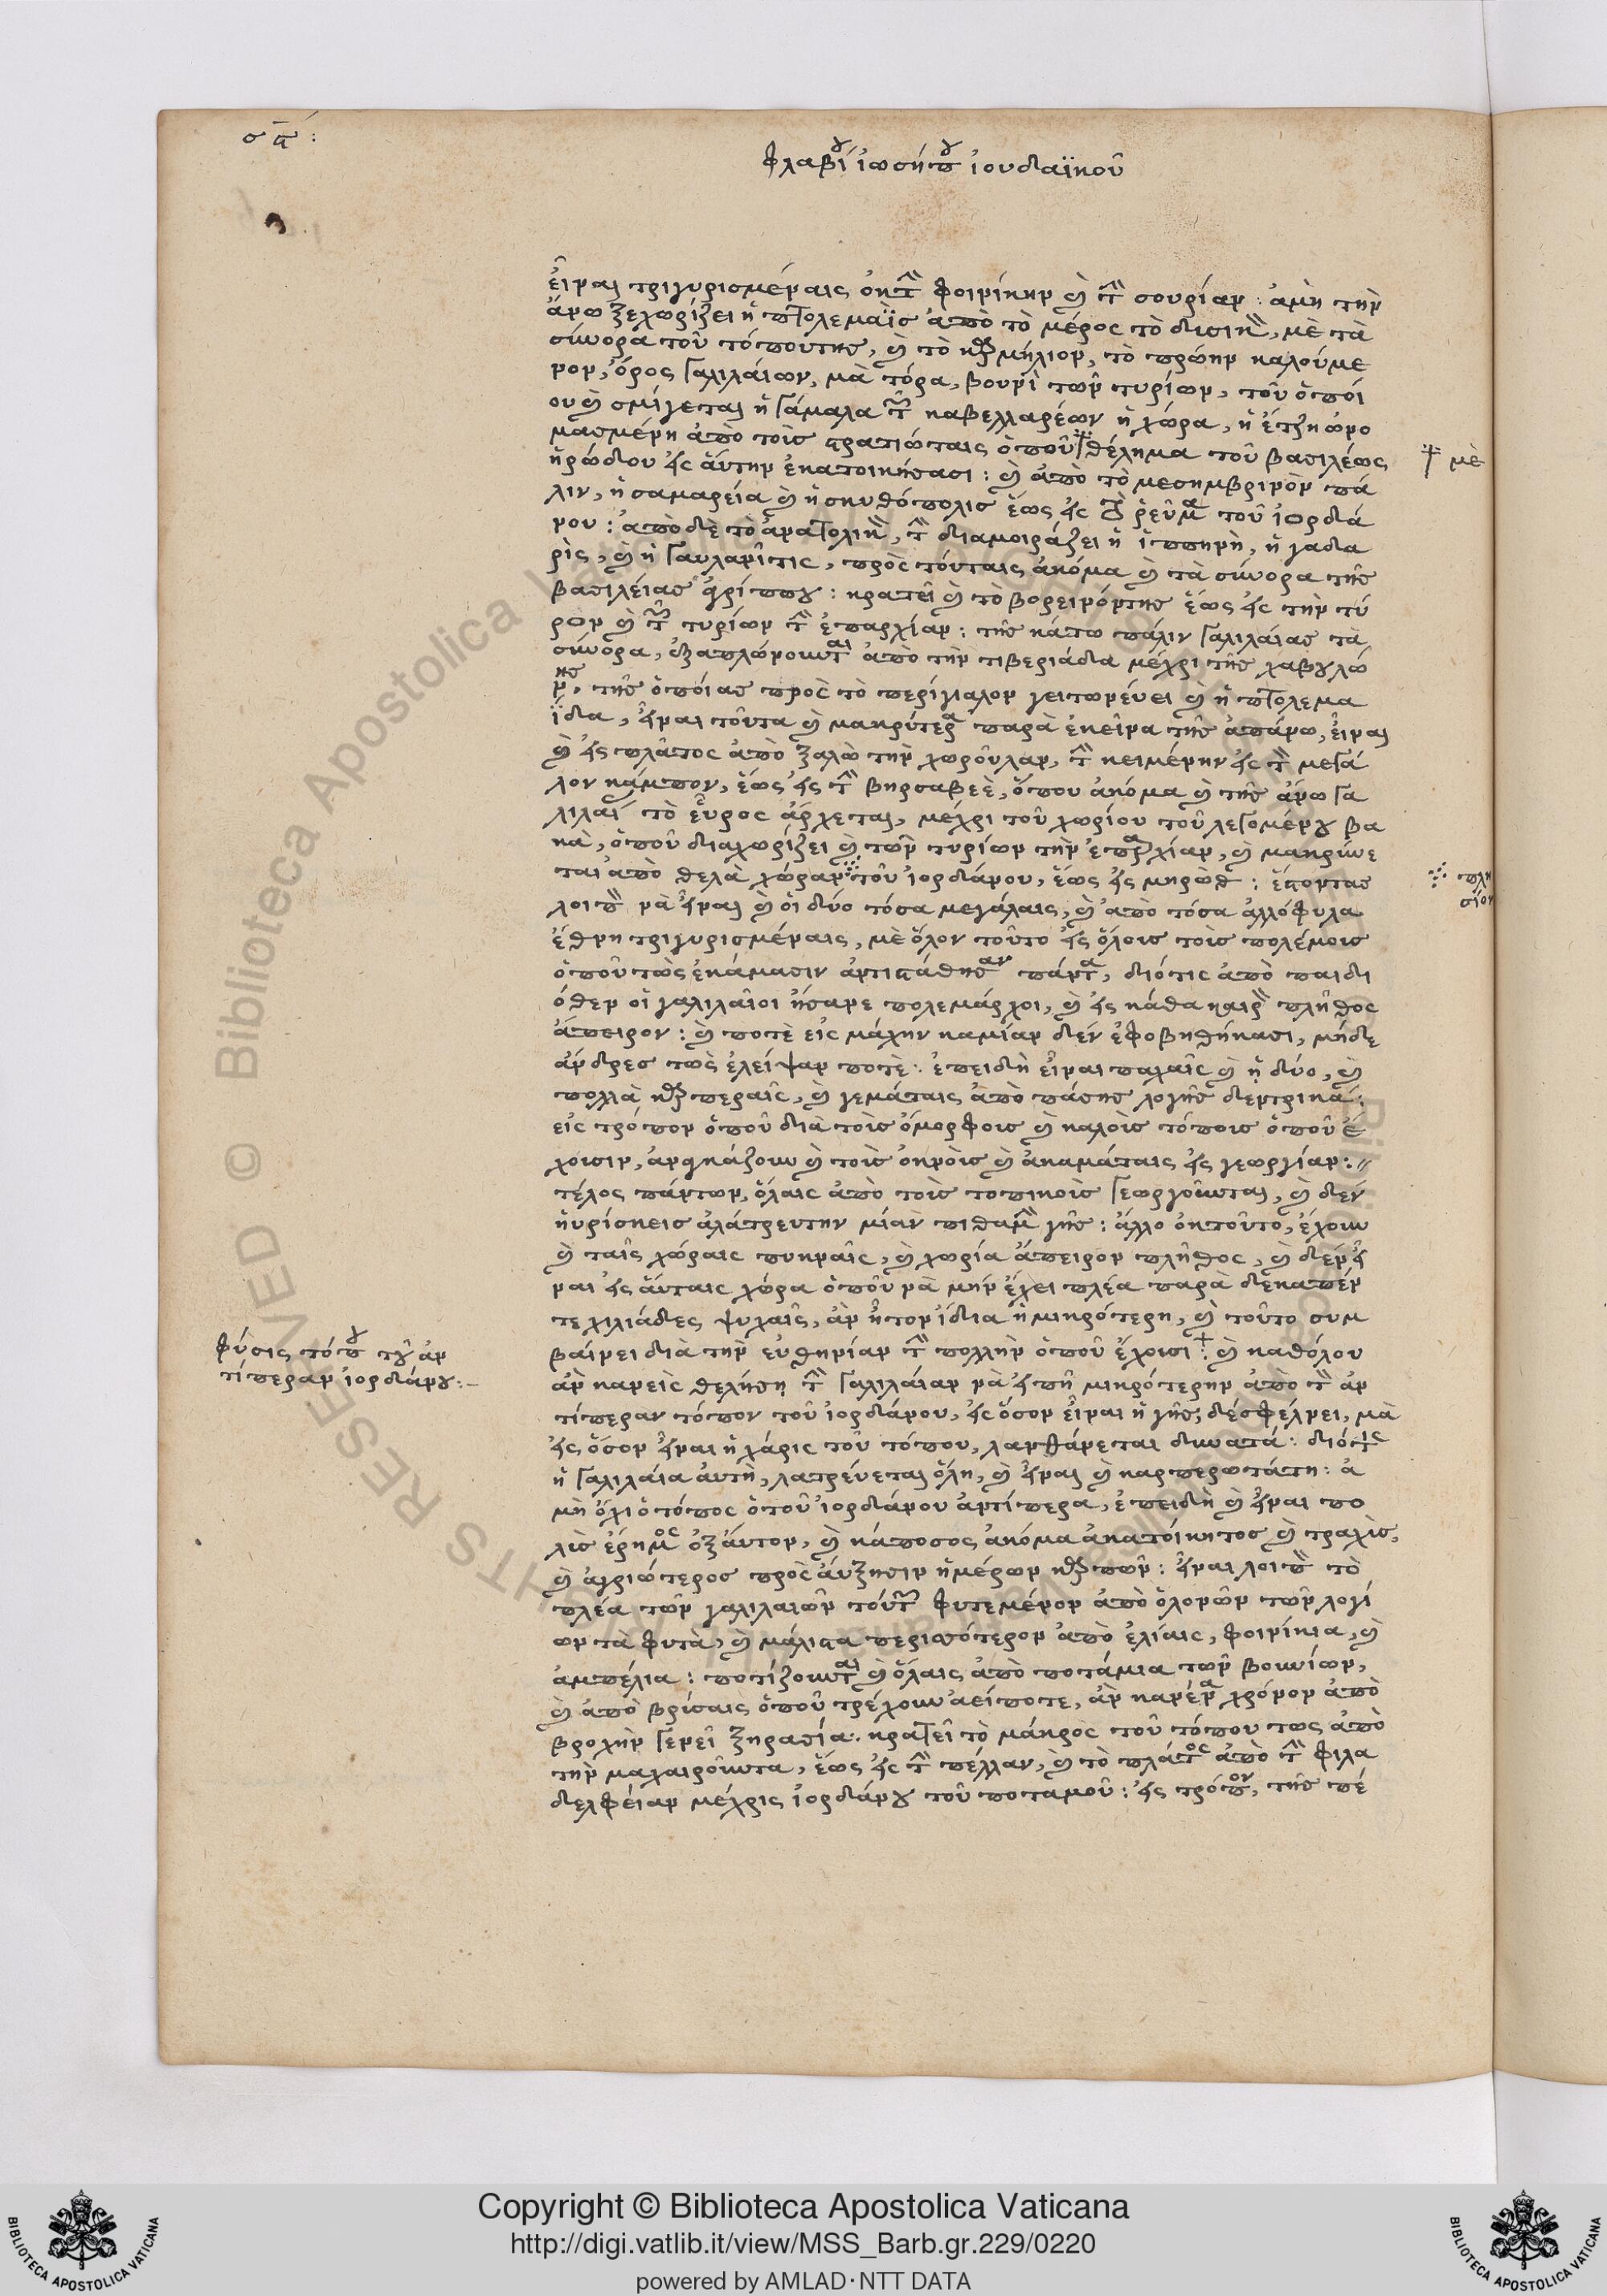 σα:
φλαβίου ἰωσήπου ἰουδαϊκοῦ
εἶναι τριγυρισμέναις ἐκ τὴν φοινίκην καὶ τὴν σουρίαν: ἀμὴ τὴν
ἄνω ξεχωρίζει ἡ πτολεμαῒς ἀπὸ τὸ μέρος τὸ δυσικὸν, μὲ τὰ
σύνορα τοῦ τόπουτης, καὶ τὸ καρμήλιον, τὸ πρώην καλούμε
νον, ὄρος γαλιλαίων, μὰ τόρα, βουνὶ τῶν τυρίων, τοῦ ὁποί
ου καὶ σμίγεται ἡ γάμαλα τῶν καβελλαρέων ἡ χώρα, ἡ ἔτζη ὠνο
μασμένη ἀπὸ τοὶς στρατιώταις ὁποῦ θέλημα τοῦ βασιλέως
ἡρώδου εἰς αὔτην ἐκατοικήσασι: καὶ ἀπὸ τὸ μεσημβρινὸν πά
λιν, ἡ σαμαρεία καὶ ἡ σκυθόπολις ἕως εἰς τὸ ῥεῦμα τοῦ ἰορδά
νου: ἀπὸ δὲ τὸ ἀνατολικὸν, τὴν διαμοιράζει ἡ ἱππηνὴ, ἡ γαδα
ρὶς, καὶ ἡ γαυλανῖτις, πρὸς τούταις ἀκόμα καὶ τὰ σύνορα τῆς
βασιλείας ἀγρίππου: κρατεῖ καὶ τὸ βορεινόντης ἕως εἰς τὴν τύ
ρον καὶ τῶν τυρίων τὴν ἐπαρχίαν: τῆς κάτω πάλιν γαλιλαίας τὰ
σύνορα, ἐξαπλώνουνται ἀπὸ τὴν τιβεριάδα μέχρι τῆς χαβουλώ
νης, τῆς ὁποίας πρὸς τὸ περίγιαλον γειτωνεύει καὶ ἡ πτολεμα
ΐδα, εἶναι τοῦτα καὶ μακρύτερα παρὰ ἐκεῖνα τῆς ἀπάνω, εἶναι
καὶ εἰς πλᾶτος ἀπὸ ξαλὼ τὴν χωροῦλαν, τὴν κειμένην εἰς τὸν μεγά
λον κάμπον, ἕως εἰς τὴν βηρσαβεὲ, ὅπου ἀκόμα καὶ τῆς ἄνω γα
λιλαί τὸ εὖρος ἄρχεται, μέχρι τοῦ χωρίου τοῦ λεγομένου βα
κὰ, ὁποῦ διαχωρίζει καὶ τῶν τυρίων τὴν ἐπαρχίαν, καὶ μακρύνε
ται ἀπὸ θελὰ χώραν τοῦ ἰορδάνου, ἕως εἰς μηρώθ: ἔστοντας
λοιπὸν νὰ εἶναι καὶ οἱ δύο τόσα μεγάλαις, καὶ ἀπὸ τόσα ἀλλόφυλα
ἔθνη τριγυρισμέναις, μὲ ὅλον τοῦτο εἰς ὅλοις τοὶς πολέμοις
ὁποῦ τὼς ἐκάμασιν ἀντιστάθησαν πάντα, διότις ἀπὸ παιδι
όθεν οἱ γαλιλαῖοι ἤσανε πολεμάρχοι, καὶ εἰς κάθα καιρὸν πλῆθος
ἄπειρον: καὶ ποτὲ εἰς μάχην καμίαν δὲν ἐφοβηθήκασι, μήδε
ἄνδρες τὼς ἐλείψαν ποτὲ: ἐπειδὴ εἶναι παχαῖς καὶ ἡ δύο, καὶ
πολλὰ καρπεραῖς, καὶ γεμάταις ἀπὸ πάσης λογῆς δεντρικά:
εἰς τρόπον ὁποῦ διὰ τοὶς ὄμορφοις καὶ καλοὶς τόποις ὁποῦ ἔ
χουσιν, ἀναγκάζουν καὶ τοὶς ὀκνοὶς καὶ ἀκαμάταις εἰς γεωργίαν:
τέλος πάντων, ὅλαις ἀπὸ τοὶς τοπικοὶς γεωργοῦνται, καὶ δὲν
ηὑρίσκεις ἀλάτρευτην μίαν πιθαμὴν γῆς: ἄλλο ἐκ τοῦτο, ἔχουν
καὶ ταῖς χώραις πυκναῖς, καὶ χωρία ἄπειρον πλῆθος, καὶ δὲν εἶ
ναι εἰς αὔταις χώρα ὁποῦ νὰ μὴν ἔχει πλέα παρὰ δεκαπέν
τε χιλιάδες ψυχαῖς, ἂν ἦτον ἴδια ἡ μικρότερη, καὶ τοῦτο συμ
βαίνει διὰ τὴν εὐθηνίαν τὴν πολλὴν ὁποῦ ἔχουσι: καὶ καθόλου
ἂν κανεὶς θελήση τὴν γαλιλαίαν νὰ εἰπῆ μικρότερην ἀπὸ τὸν ἀν
τίπεραν τόπον τοῦ ἰορδάνου, εἰς ὅσον εἶναι ἡ γῆς, δὲσφέλνει, μὰ
εἰς ὅσον εἶναι ἡ χάρις τοῦ τόπου, λανθάνεται δυνατά: διότις
ἡ γαλιλαία αὐτὴ, λατρεύεται ὅλη, καὶ εἶναι καὶ καρπερωτάτη: ἀ
μὴ ὄχι ὁ τόπος ὁ τοῦ ἰορδάνου ἀντίπερα, ἐπειδὴ καὶ εἶναι πο
λὶς ἔρημος ἐξ αὐτον, καὶ κάποσος ἀκόμα ἀκατοίκητος καὶ τραχὶς,
καὶ ἀγριώτερος πρὸς αὔξησιν ἡμέρων καρπῶν: εἶναι λοιπὸν τὸ
πλέα τῶν γαλιλαιῶν τούτων φυτεμένον ἀπὸ ὁλονῶν τῶν λογί
ων τὰ φυτὰ, καὶ μάλιστα περισότερον ἀπὸ ἐλίαις, φοινίκια, καὶ
ἀμπέλια: ποτίζουνται καὶ ὅλαις ἀπὸ ποτάμια τῶν βουνίων,
καὶ ἀπὸ βρίσαις ὁποῦ τρέχουν ἀείποτε, ἂν κανένα χρόνον ἀπὸ
βροχὴν γενεῖ ξηρασία. κρατεῖ τὸ μάκρος τοῦ τόπου τως ἀπὸ
τὴν μαχαιροῦντα, ἕως εἰς τὴν πέλλαν, καὶ τὸ πλάτος ἀπὸ τὴν φιλα
δελφείαν μέχρις ἰορδάνου τοῦ ποταμοῦ: εἰς τρόπον, τῆς πέ
μὲ
πλη
σίον
φύσις τόπου τοῦ ἀν
τίπεραν ἰορδάνου:
Copyright © Biblioteca Apostolica Vaticana
http://digi.vatlib.it/view/MSS_Barb.gr.229/0220
powered by AMLAD·NTT DATA